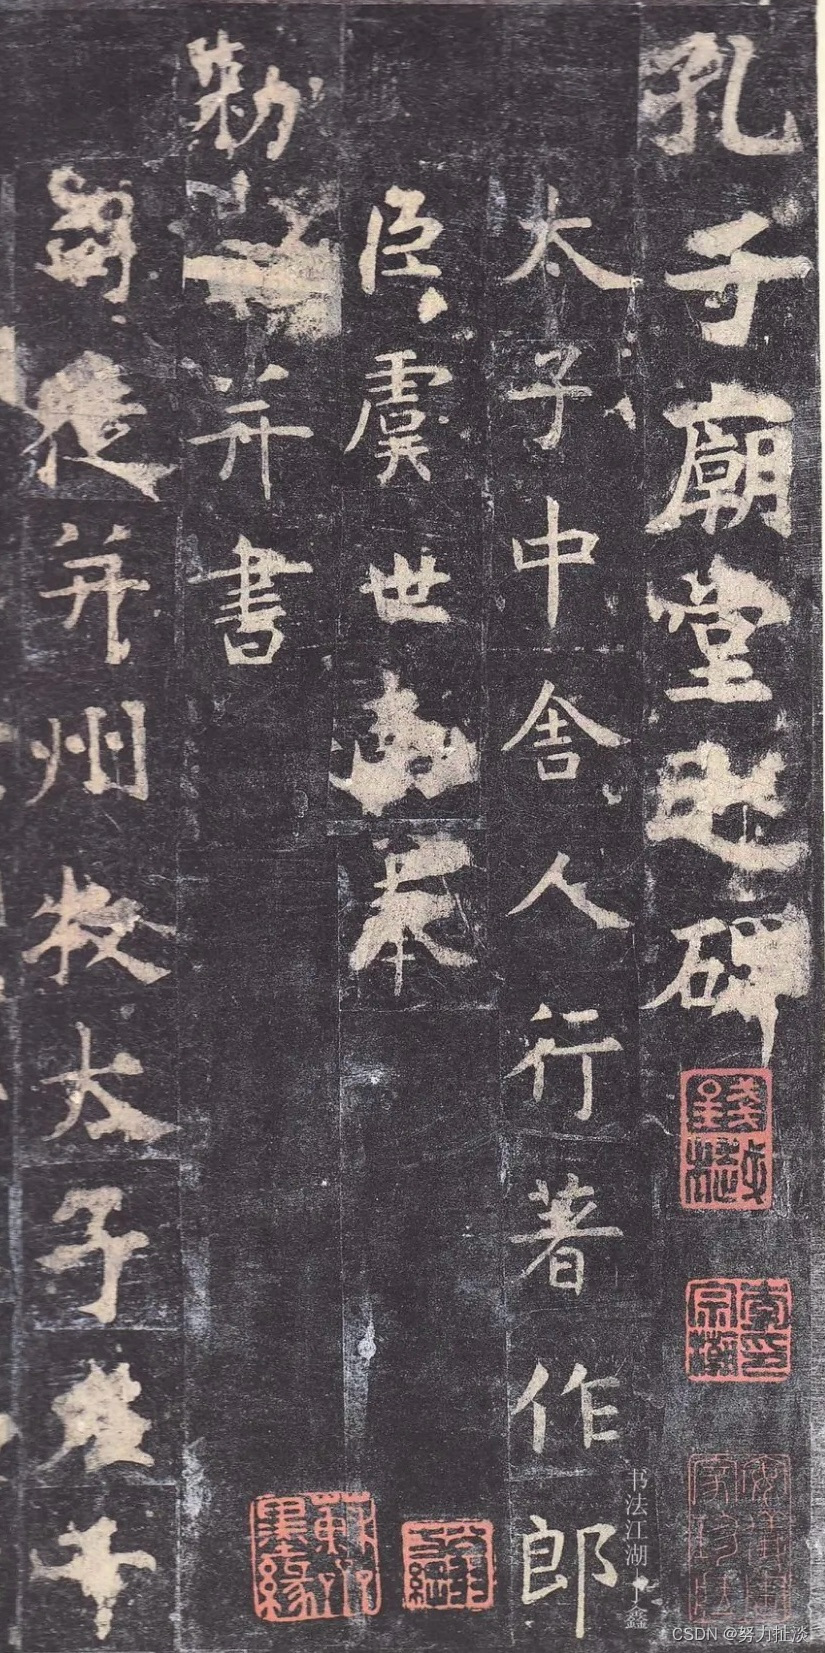 孔子廟堂之碑
太子中舍人行著作郎
臣虞世南奉
勅并書
徒并州牧太子
书法江湖
CSDN @努力扯淡